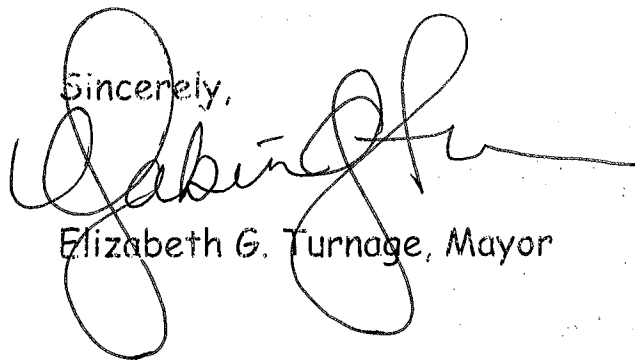 Sincerely,
Elizabeth G. Turnage, Mayor